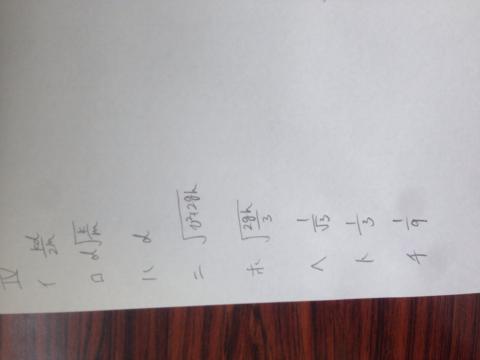 IV
イ kd/2m
ロ d√(k/m)
ハ d
ニ √(v²+2gh)
ホ √(2gh/3)
ヘ 1/√3
ト 1/3
チ 1/9